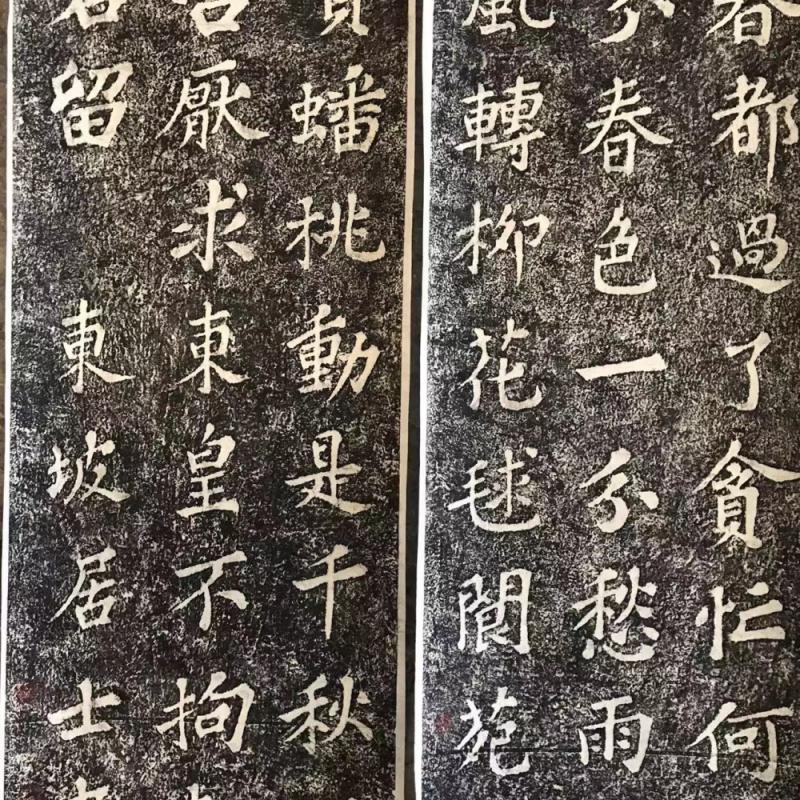 春都過了貪忙何
分春色一分愁雨
風轉柳花毬閬苑
責蟠桃動是千秋
苦厭求東皇不拘
君留 東坡居士